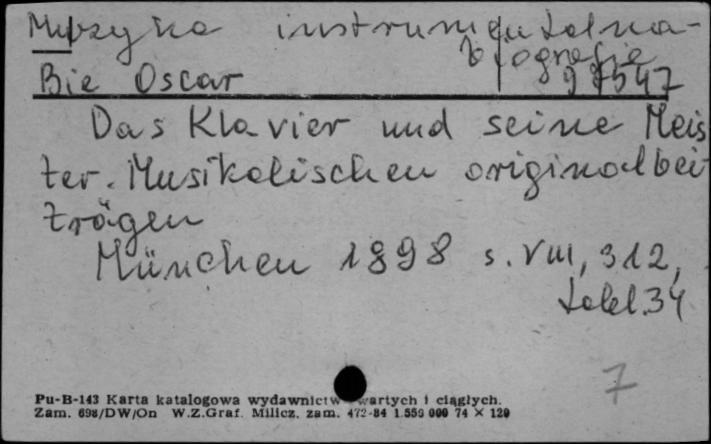 Muzyka instrumentalna-
biografie
Bie Oscar 97547
Das Klavier und seine Meis
ter. Musikalischen originalbei-
trägen
München 1898 s. VIII, 312,
tabl. 34
7
Pu-B-143 Karta katalogowa wydawnictw wartych i ciągłych.
Zam. 698/DW/On W.Z.Graf. Milicz, zam. 472-84 1.550 000 74 × 120